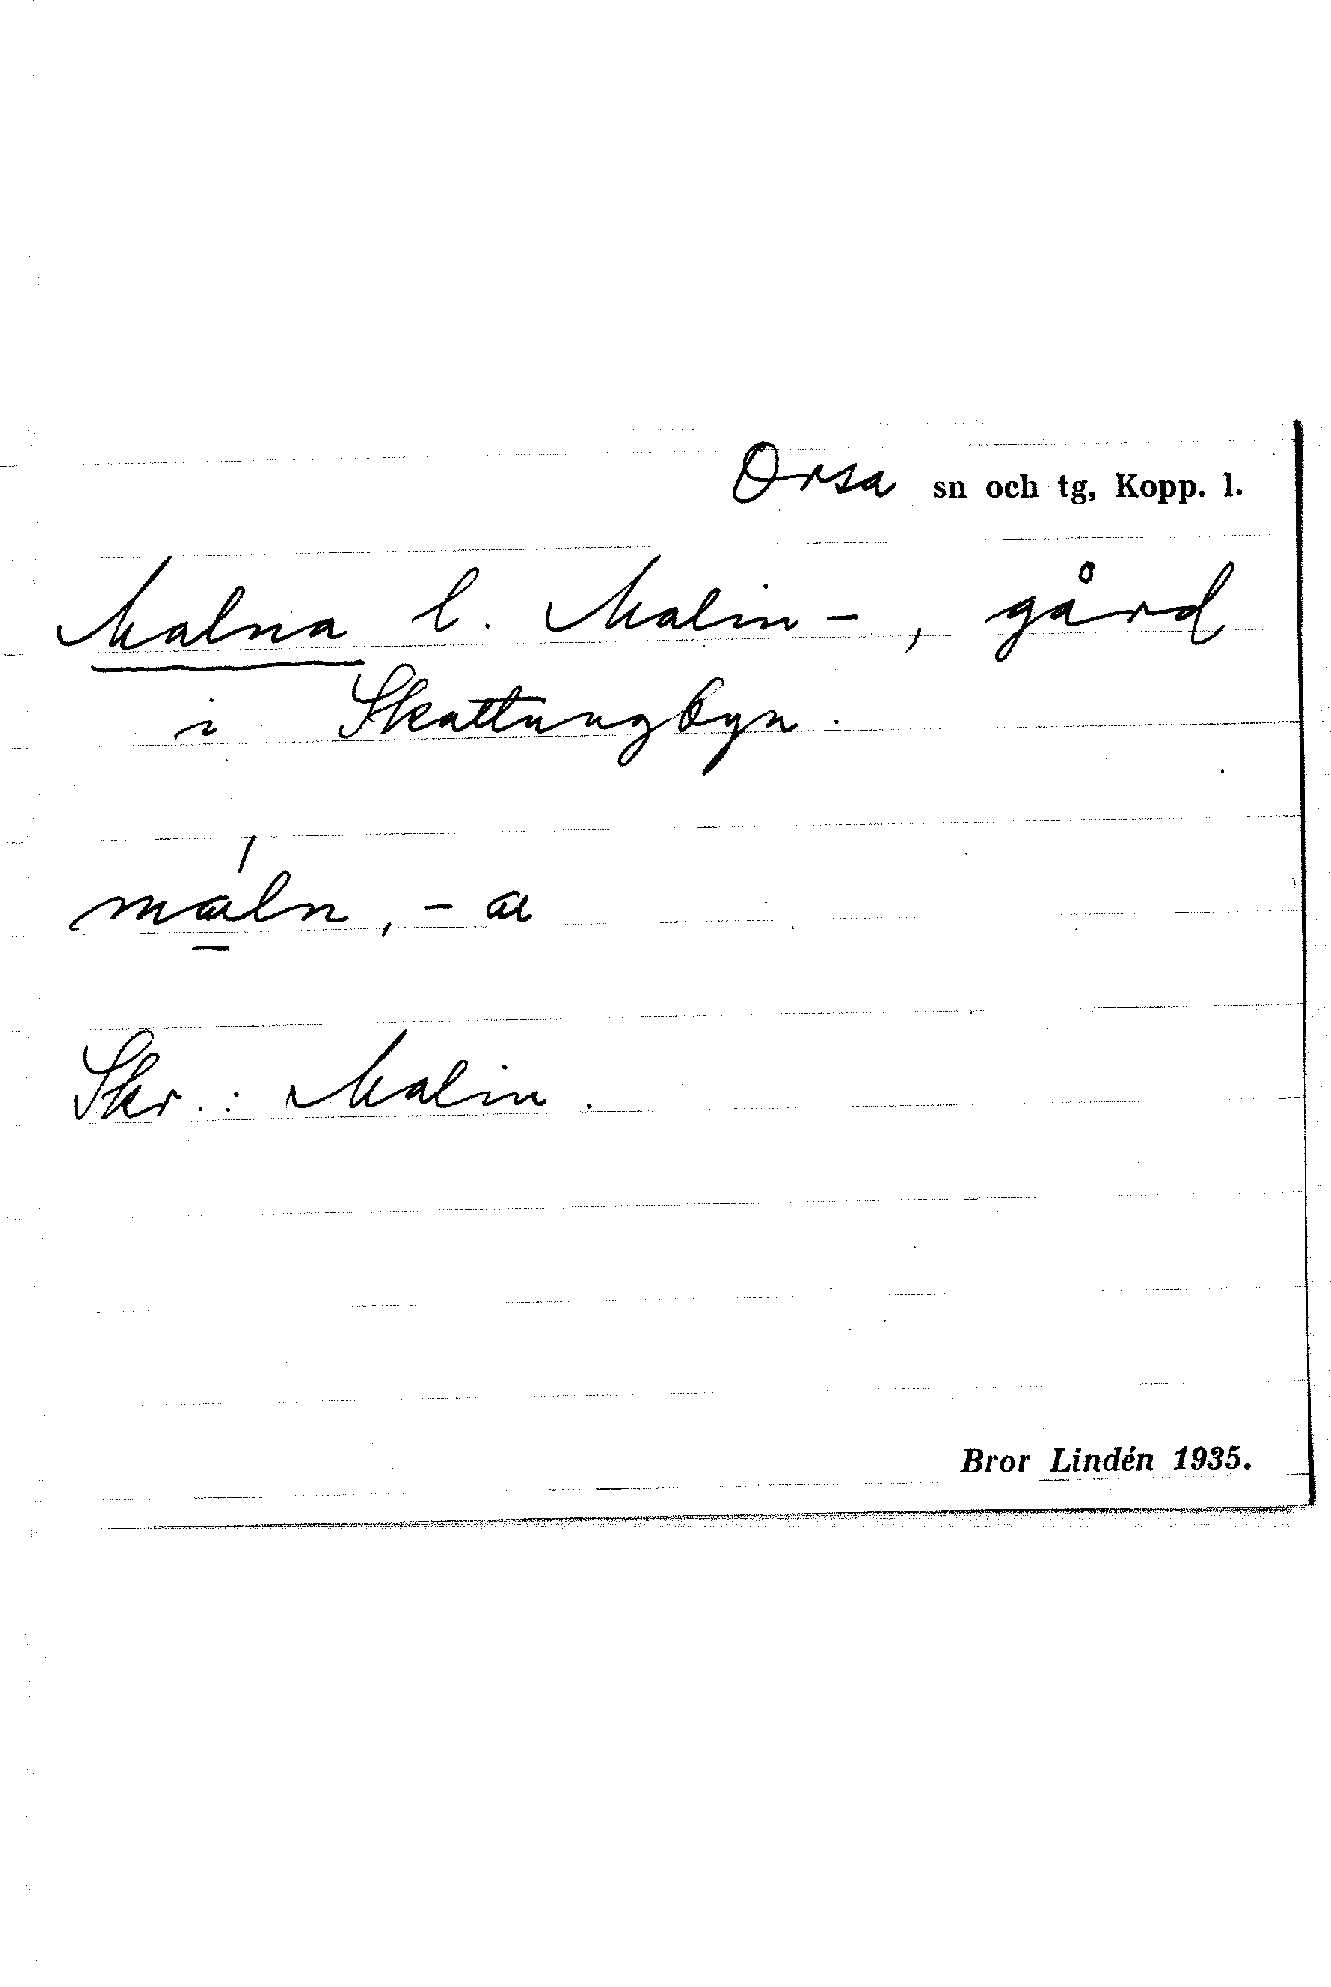 Orsa sn och tg, Kopp. l.
Malna l. Malin-, gård
i Skattungbyn.
máln, -a
Skr.: Malin.
Bror Lindén 1935.